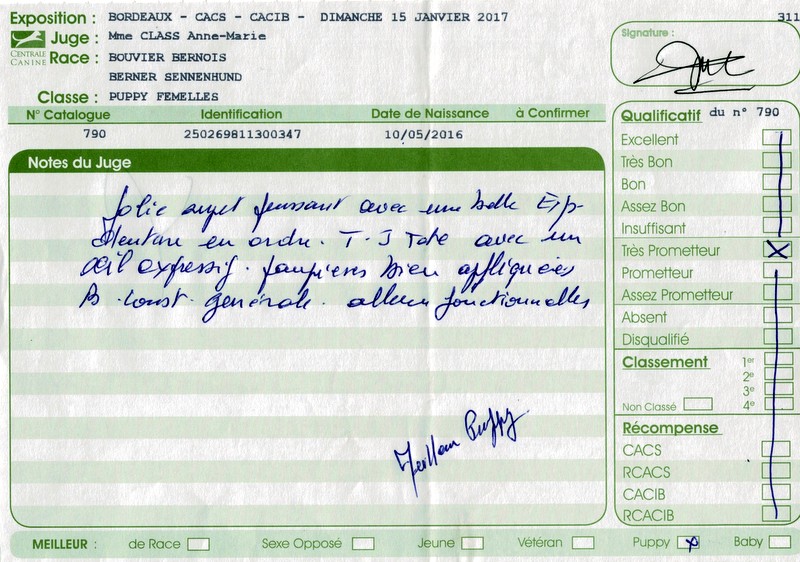 Exposition : BORDEAUX - CACS - CACIB - DIMANCHE 15 JANVIER 2017
311
CENTRALE CANINE
Juge : Mme CLASS Anne-Marie
Race : BOUVIER BERNOIS
BERNER SENNENHUND
Classe : PUPPY FEMELLES
Signature :
N° Catalogue Identification Date de Naissance à Confirmer
790 250269811300347 10/05/2016
Notes du Juge
Jolie sujet puissant avec une belle Exp-
Denture en ordre. T.J Tete avec un
œil expressif. paupières bien appliquées
B. const. générale. allures fonctionnelles
Meilleur Puppy
Qualificatif du n° 790
Excellent
Très Bon
Bon
Assez Bon
Insuffisant
Très Prometteur X
Prometteur
Assez Prometteur
Absent
Disqualifié
Classement 1er
2e
3e
Non Classé 4e
Récompense
CACS
RCACS
CACIB
RCACIB
MEILLEUR : de Race Sexe Opposé Jeune Vétéran Puppy x Baby